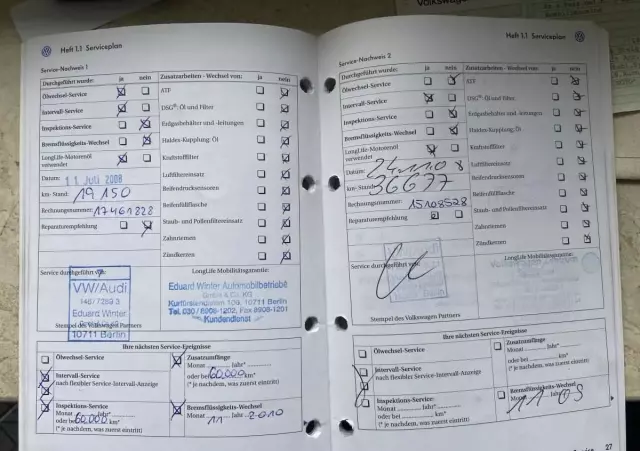 Volkswagen
Heft 1.1 Serviceplan
Service-Nachweis 1
Durchgeführt wurde: ja nein Zusatzarbeiten - Wechsel von: ja nein
Ölwechsel-Service ATF
Intervall-Service DSG®: Öl und Filter
Inspektions-Service Erdgasbehälter und -leitungen
Bremsflüssigkeits-Wechsel Haldex-Kupplung: Öl
LongLife-Motorenöl verwendet Kraftstofffilter
Datum: 11. Juli 2008 Luftfiltereinsatz
km-Stand: 19150 Reifendrucksensoren
Reifenfüllflasche
Rechnungsnummer: 17461828
Staub- und Pollenfiltereinsatz
Reparaturempfehlung
Zahnriemen
Zündkerzen
Service durchgeführt von: LongLife Mobilitätsgarantie:
VW/Audi
Eduard Winter
10711 Berlin
Eduard Winter Automobilbetriebe
GmbH & Co. KG
Kurfürstendamm 106, 10711 Berlin
Tel. 030 / 8908-1202, Fax 8908-1201
Kundendienst
Stempel des Volkswagen Partners
Ihre nächsten Service-Ereignisse
Ölwechsel-Service
Zusatzumfänge
Monat Jahr*
oder bei 60,000 km*
(* je nachdem, was zuerst eintritt)
Intervall-Service
nach flexibler Service-Intervall-Anzeige
Inspektions-Service
Monat Jahr*
oder bei 60,000 km*
(* je nachdem, was zuerst eintritt)
Bremsflüssigkeits-Wechsel
Monat 11 Jahr 2010
Heft 1.1 Serviceplan
Service-Nachweis 2
Durchgeführt wurde: ja nein Zusatzarbeiten - Wechsel von: ja nein
Ölwechsel-Service ATF
Intervall-Service DSG®: Öl und Filter
Inspektions-Service Erdgasbehälter und -leitungen
Bremsflüssigkeits-Wechsel Haldex-Kupplung: Öl
LongLife-Motorenöl verwendet Kraftstofffilter
Datum: Luftfiltereinsatz
km-Stand: 36677 Reifendrucksensoren
Rechnungsnummer: 15108528 Reifenfüllflasche
Reparaturempfehlung Staub- und Pollenfiltereinsatz
Zahnriemen
Zündkerzen
Service durchgeführt von: LongLife Mobilitätsgarantie:
Stempel des Volkswagen Partners
Ihre nächsten Service-Ereignisse
Ölwechsel-Service
Zusatzumfänge
Monat Jahr*
oder bei km*
(* je nachdem, was zuerst eintritt)
Intervall-Service
nach flexibler Service-Intervall-Anzeige
Inspektions-Service:
Monat Jahr*
oder bei km*
(* je nachdem, was zuerst eintritt)
Bremsflüssigkeits-Wechsel
Monat Jahr
Service 27